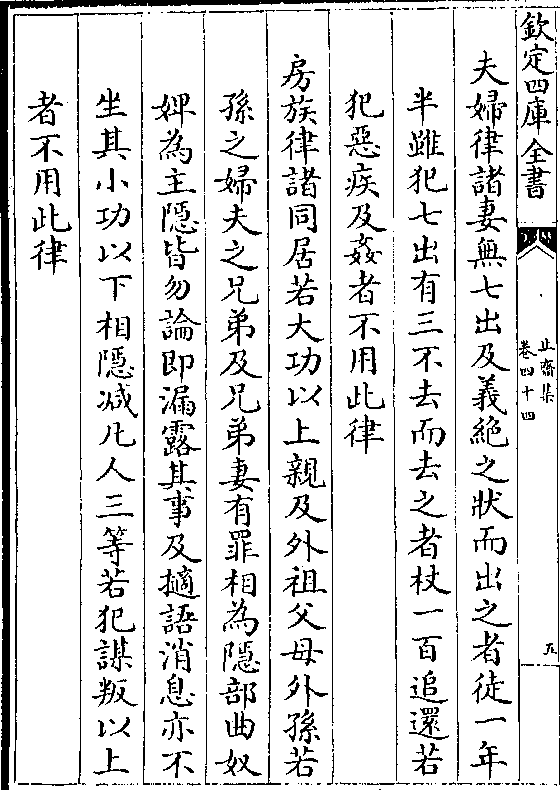 欽定四庫全書
止齋集
卷四十四
五
夫婦律諸妻無七出及義絶之狀而出之者徒一年
半雖犯七出有三不去而去之者杖一百追還若
犯惡疾及姦者不用此律
房族律諸同居若大功以上親及外祖父母外孫若
孫之婦夫之兄弟及兄弟妻有罪相為隱部曲奴
婢為主隱皆勿論即漏露其事及擿語消息亦不
坐其小功以下相隱減凡人三等若犯謀叛以上
者不用此律